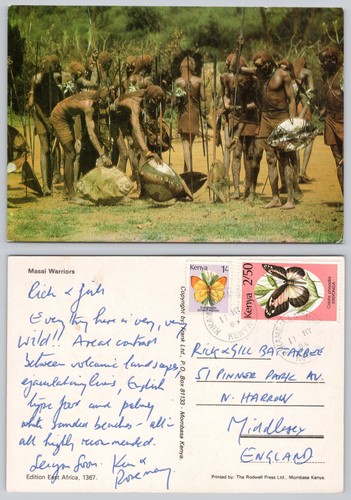 Masai Warriors
Rich & Gill
Everything here is very, very
wild!! Areal contrast
between volcanic landscapes,
ejaculating lions, English
type for and palmy
white sanded beaches - all in
all highly recommended.
See you soon. Ken &
Rosemary
Edition East Africa, 1367.
Copyright by Frank Ltd., P.O. Box 81133 - Mombasa Kenya.
Kenya 1/-
Kenya 2/50
RICK & GILL BATTARBEE
51 PINNER PARK AV.
N. HARROW
MIDDLESEX
ENGLAND
Printed by: The Rodwell Press Ltd., Mombasa Kenya.